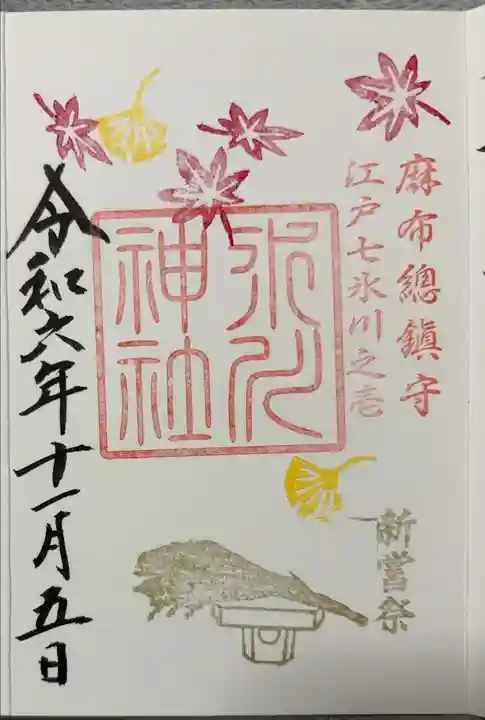 麻布總鎮守
江戸七氷川之壱
氷川
神社
新嘗祭
令和六年十一月五日